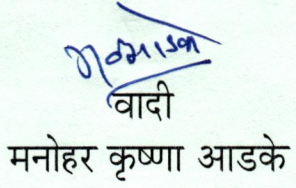 वादी
मनोहर कृष्णा आडके